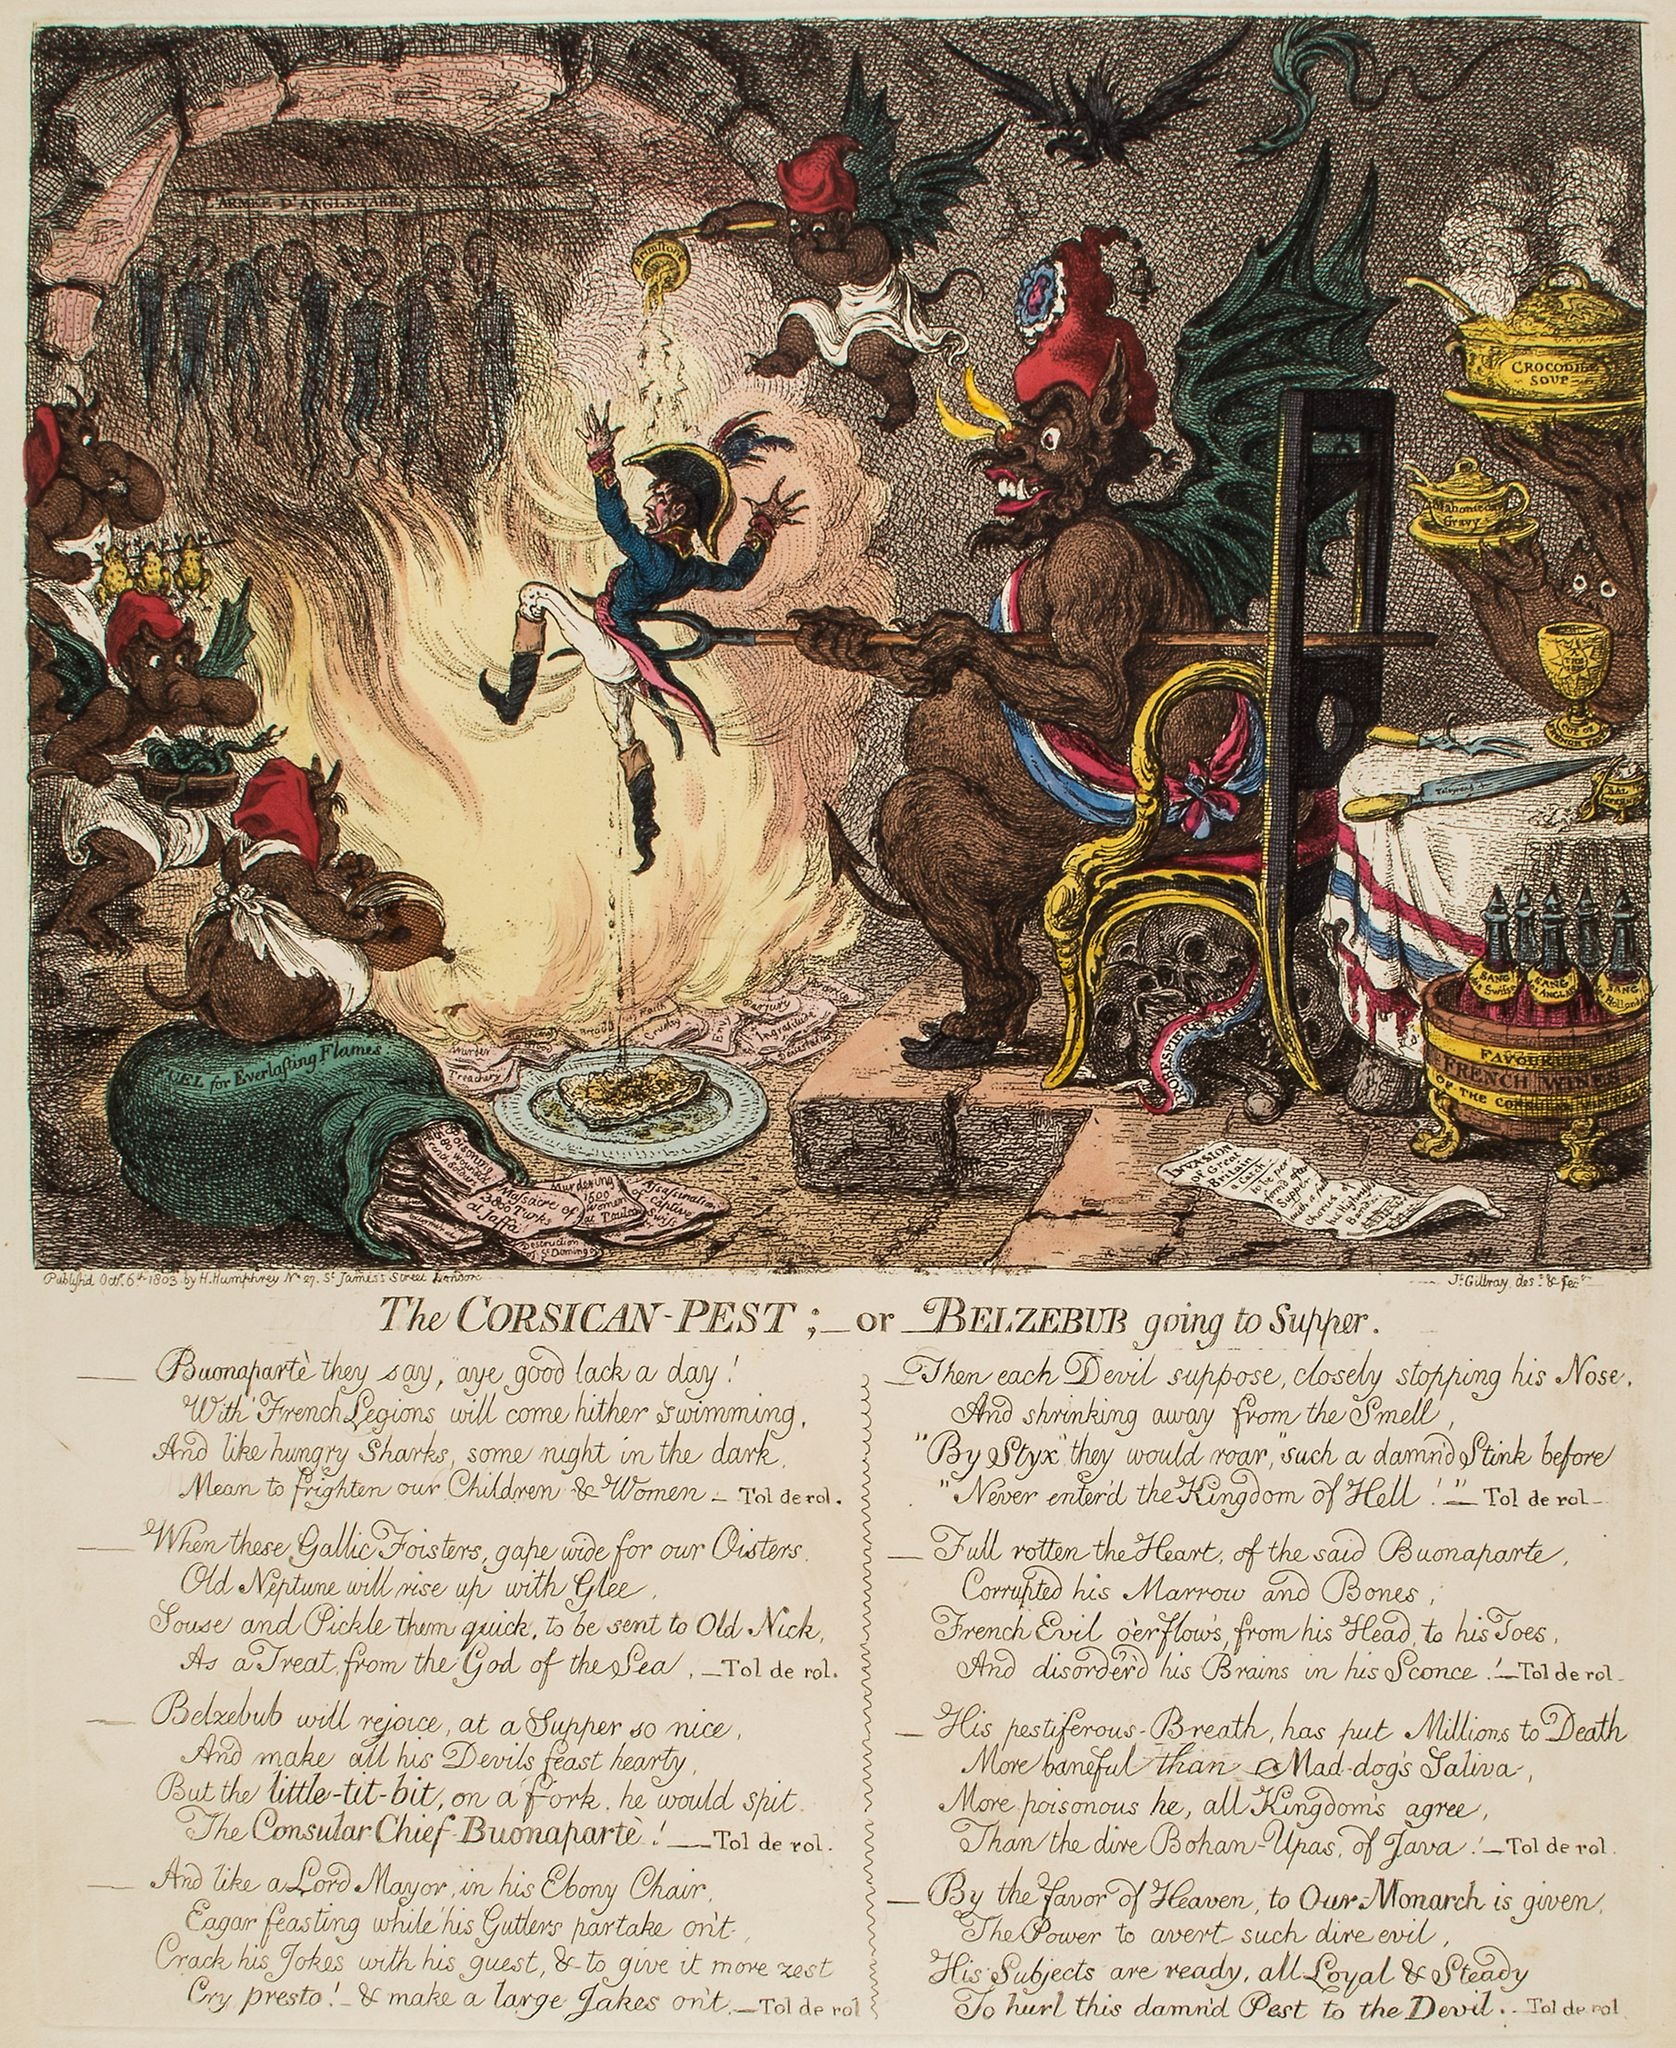 L'ARMEE D'ANGLETARRE
Brimstone
CROCODILE
SOUP
Mahometan
Gravy
CUP OF
SAL
FUEL for Everlasting Flames
Murder
Treachery
Fraud
Cruelty
Envy
Perjury
Ingratitude
Poisoning
580 wounded
french soldiers
Massacre of
3800 Turks
at Jaffa
Murdering
1500
women
at Toulon
Assassination
of captive
Swiss
Destruction
St Domingo
ROBESPIERRE
SANG
des Swisse
SANG
d'ANGLAIS
SANG
d'Hollande
FAVOURITE
FRENCH WINES
OF THE CORSICAN
INVASION
of Great
Britain
a Catch
to be per-
formd after
Supper
with a full
chorus of
his Highness's
Band
Publishd Octr. 6th 1803 by H. Humphrey No 27. St. James's Street London
Js. Gillray, des: & fect.
The CORSICAN-PEST; — or — BELZEBUB going to Supper.
— Buonapartè they say, aye good lack a day!
With French Legions will come hither swimming,
And like hungry Sharks, some night in the dark,
Mean to frighten our Children & Women — Tol de rol.
— When these Gallic Foisters, gape wide for our Oisters,
Old Neptune will rise up with Glee,
Souse and Pickle them quick, to be sent to Old Nick,
As a Treat, from the God of the Sea, — Tol de rol.
— Belzebub will rejoice, at a Supper so nice,
And make all his Devils feast hearty,
But the little-tit-bit, on a fork, he would spit
The Consular Chief Buonapartè! — Tol de rol.
— And like a Lord Mayor, in his Ebony Chair,
Eagar feasting while his Gutlers partake on't,
Crack his Jokes with his guest, & to give it more zest
Cry presto! — & make a large Jakes on't. — Tol de rol
— Then each Devil suppose, closely stopping his Nose,
And shrinking away from the Smell,
"By Styx" they would roar, "such a damn'd Stink before
"Never enter'd the Kingdom of Hell!" — Tol de rol —
— Full rotten the Heart, of the said Buonaparte,
Corrupted his Marrow and Bones,
French Evil o'erflows, from his Head, to his Toes,
And disorder'd his Brains in his Sconce! — Tol de rol —
— His pestiferous-Breath, has put Millions to Death
More baneful than Mad-dog's Saliva,
More poisonous he, all Kingdom's agree,
Than the dire Bohan-Upas, of Java! — Tol de rol.
— By the favor of Heaven, to Our Monarch is given,
The Power to avert such dire evil,
His Subjects are ready, all Loyal & Steady
To hurl this damn'd Pest to the Devil. — Tol de rol